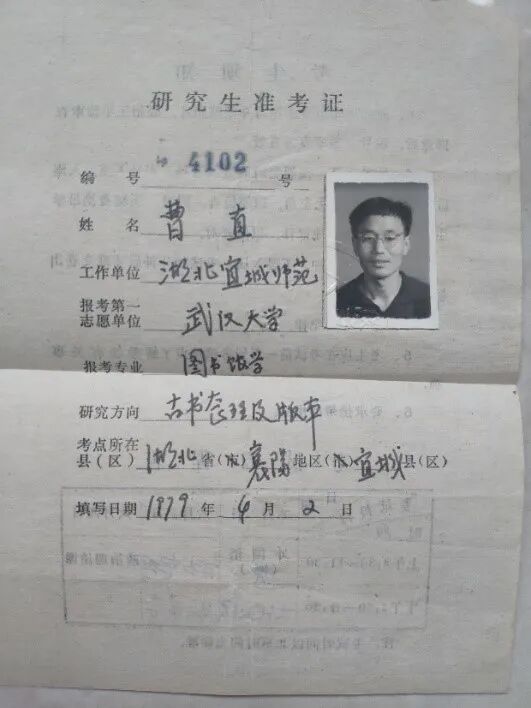 研究生准考证
编号 4102 号
姓名 曹直
工作单位 湖北宜城师范
报考第一志愿单位 武汉大学
报考专业 图书馆学
研究方向 古书整理及版本
考点所在县(区) 湖北省(市)襄阳地区(市)宜城县(区)
填写日期 1979年4月2日